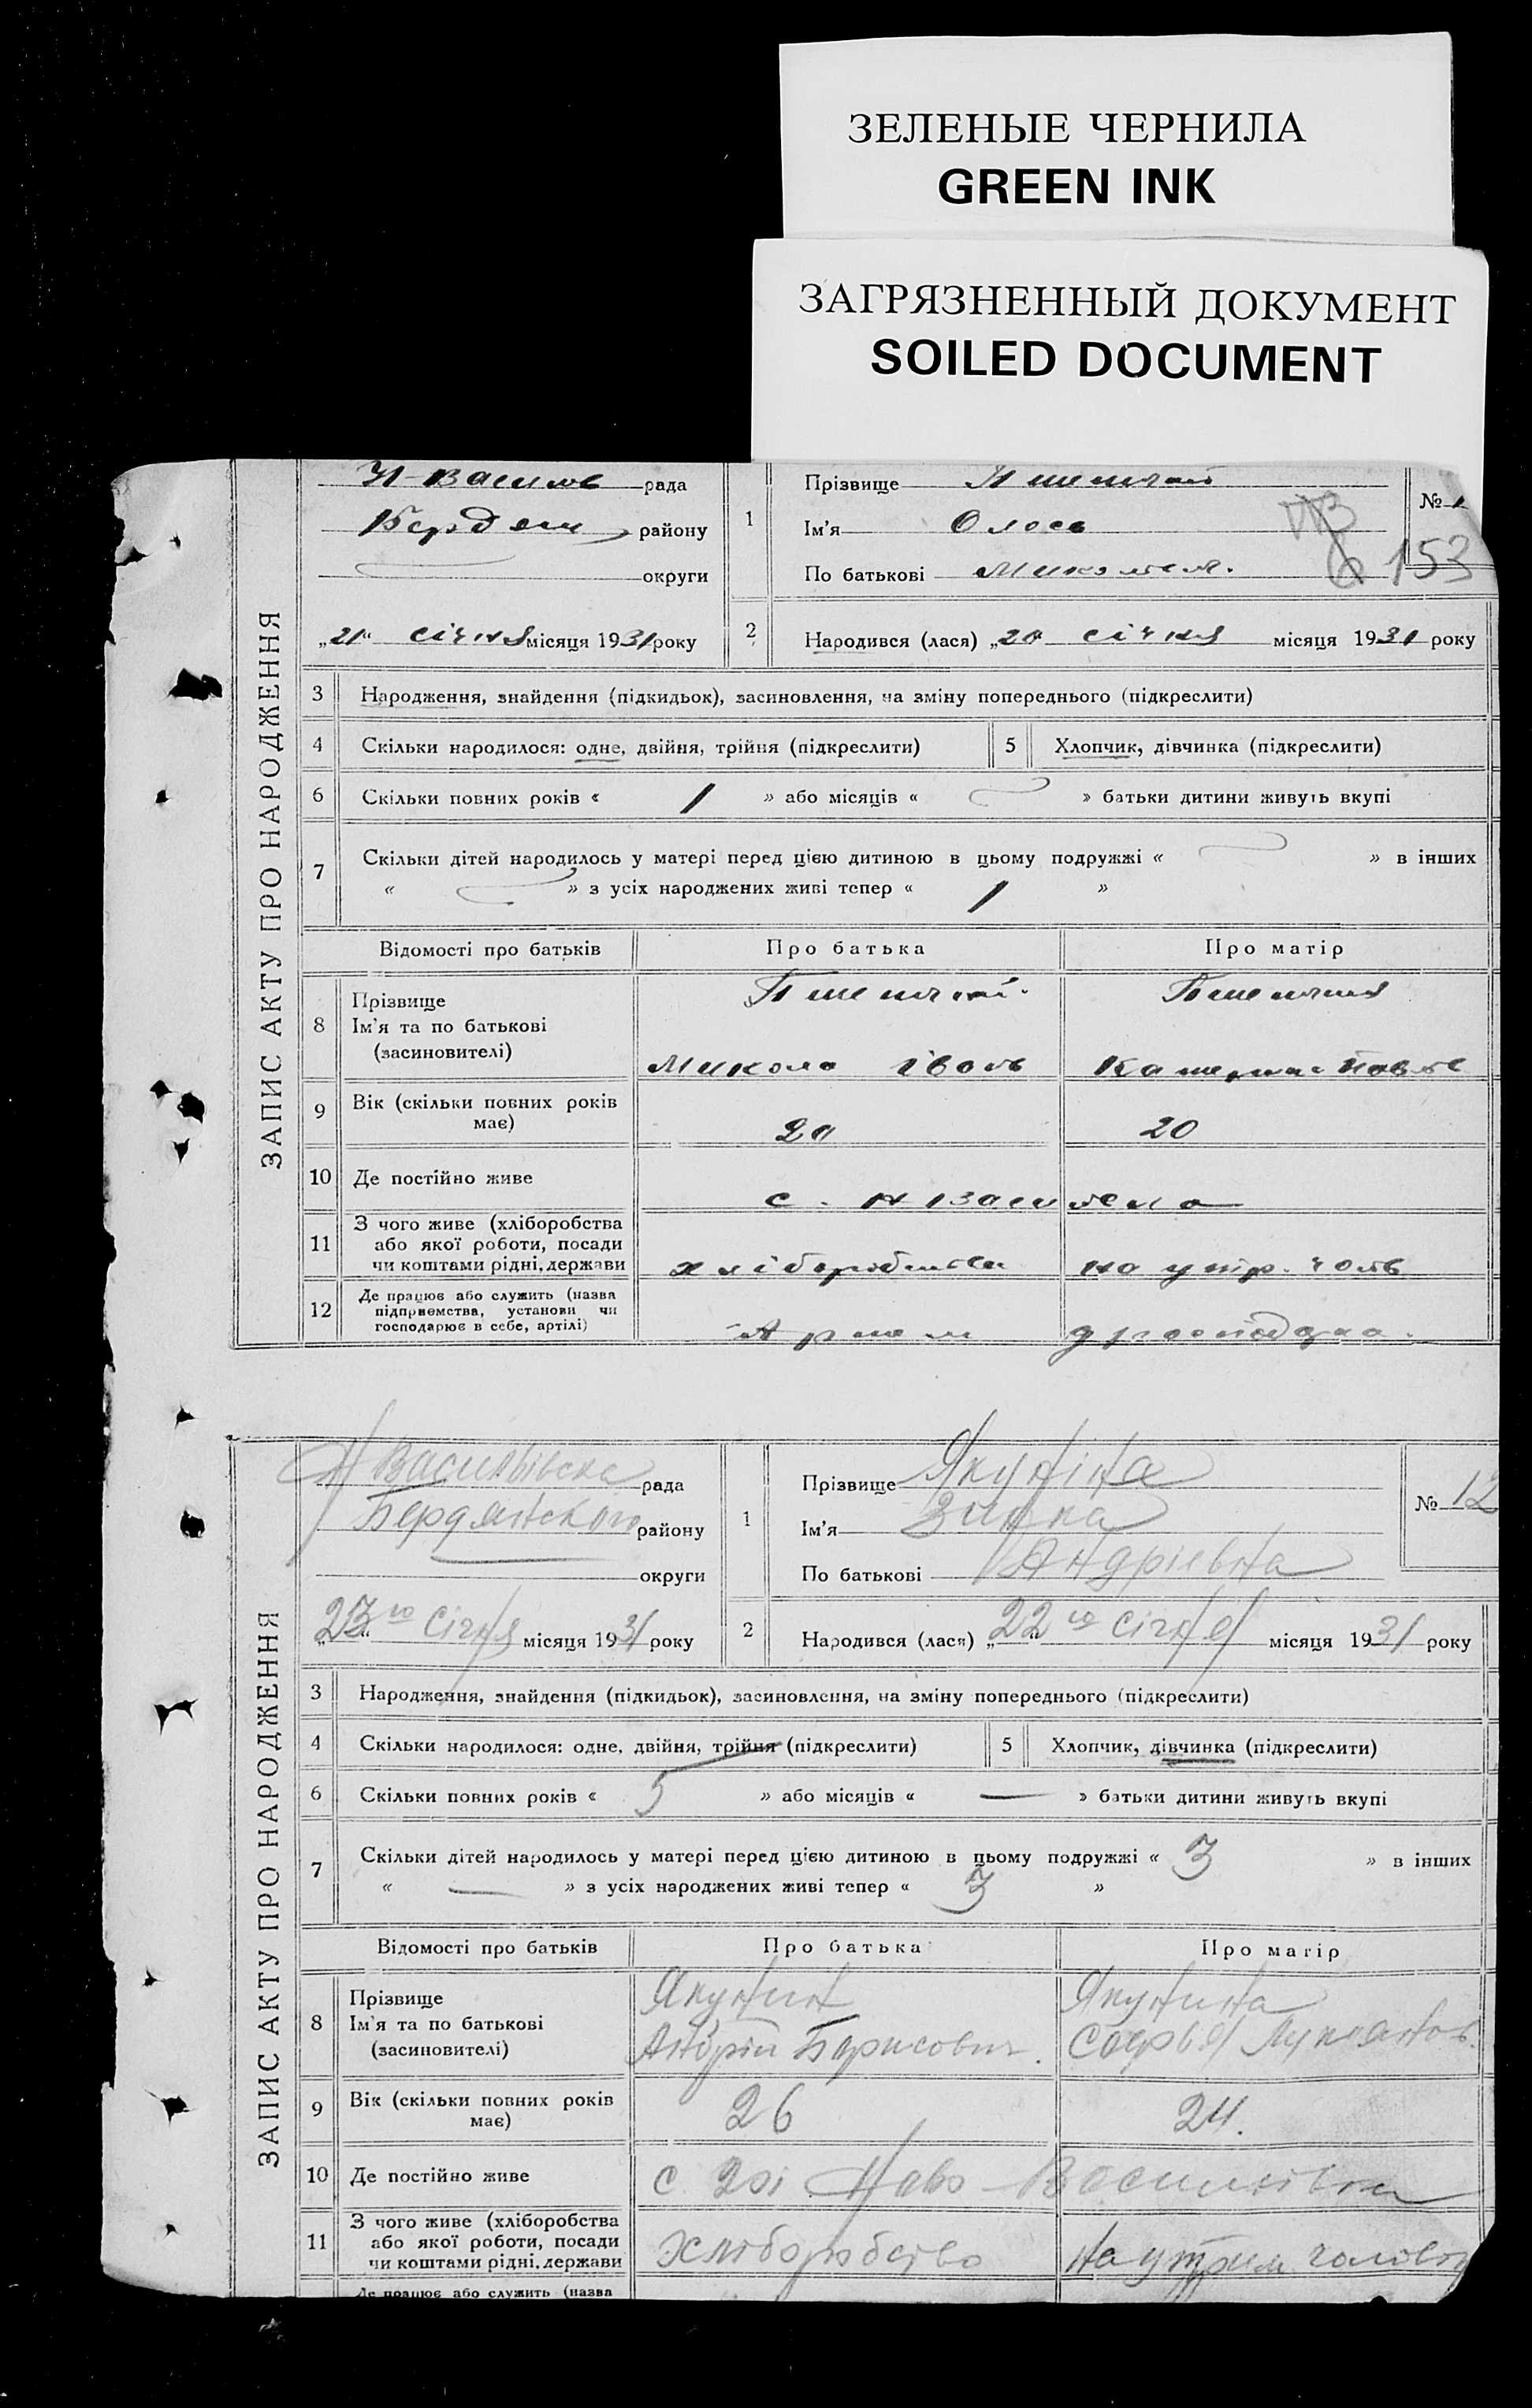 ЗЕЛЕНЫЕ ЧЕРНИЛА
GREEN INK
ЗАГРЯЗНЕННЫЙ ДОКУМЕНТ
SOILED DOCUMENT
ЗАПИС АКТУ ПРО НАРОДЖЕННЯ
рада
району
округи
„21“ січня місяця 1931 року
1
Прізвище
Ім'я
По батькові
№
153
2
Народився (лася) „20 січня місяця 1931 року
3 Народження, знайдення (підкидьок), засиновлення, на зміну попереднього (підкреслити)
4 Скільки народилося: одне, двійня, трійня (підкреслити)
5 Хлопчик, дівчинка (підкреслити)
6 Скільки повних років « 1 » або місяців « » батьки дитини живуть вкупі
7 Скільки дітей народилось у матері перед цією дитиною в цьому подружжі « » в інших
« » з усіх народжених живі тепер « 1 »
Відомості про батьків Про батька Про матір
8 Прізвище
Ім'я та по батькові
(засиновителі)
Микола Іван
9 Вік (скільки повних років
має)
20 20
10 Де постійно живе
11 З чого живе (хліборобства
або якої роботи, посади
чи коштами рідні, держави
на утр. чолов
12 Де працює або служить (назва
підприємства, установи чи
господарює в себе, артілі)
ЗАПИС АКТУ ПРО НАРОДЖЕННЯ
Н Васильівська рада
Бердянского району
округи
„23го“ Січня місяця 1931 року
1
Прізвище Якуніна
Ім'я
По батькові Андріевна
№ 12
2
Народився (лася) „22го Січня місяця 1931 року
3 Народження, знайдення (підкидьок), засиновлення, на зміну попереднього (підкреслити)
4 Скільки народилося: одне, двійня, трійня (підкреслити)
5 Хлопчик, дівчинка (підкреслити)
6 Скільки повних років « 5 » або місяців « — » батьки дитини живуть вкупі
7 Скільки дітей народилось у матері перед цією дитиною в цьому подружжі « 3 » в інших
« — » з усіх народжених живі тепер « 3 »
Відомості про батьків Про батька Про матір
8 Прізвище
Ім'я та по батькові
(засиновителі)
Якунин Якунина
Андрій Борисович. Софья Лукьянов.
9 Вік (скільки повних років
має)
26 24.
10 Де постійно живе
Ново-Василівка
11 З чого живе (хліборобства
або якої роботи, посади
чи коштами рідні, держави
Хліборобство На утрим. чоловіка
Де працює або служить (назва